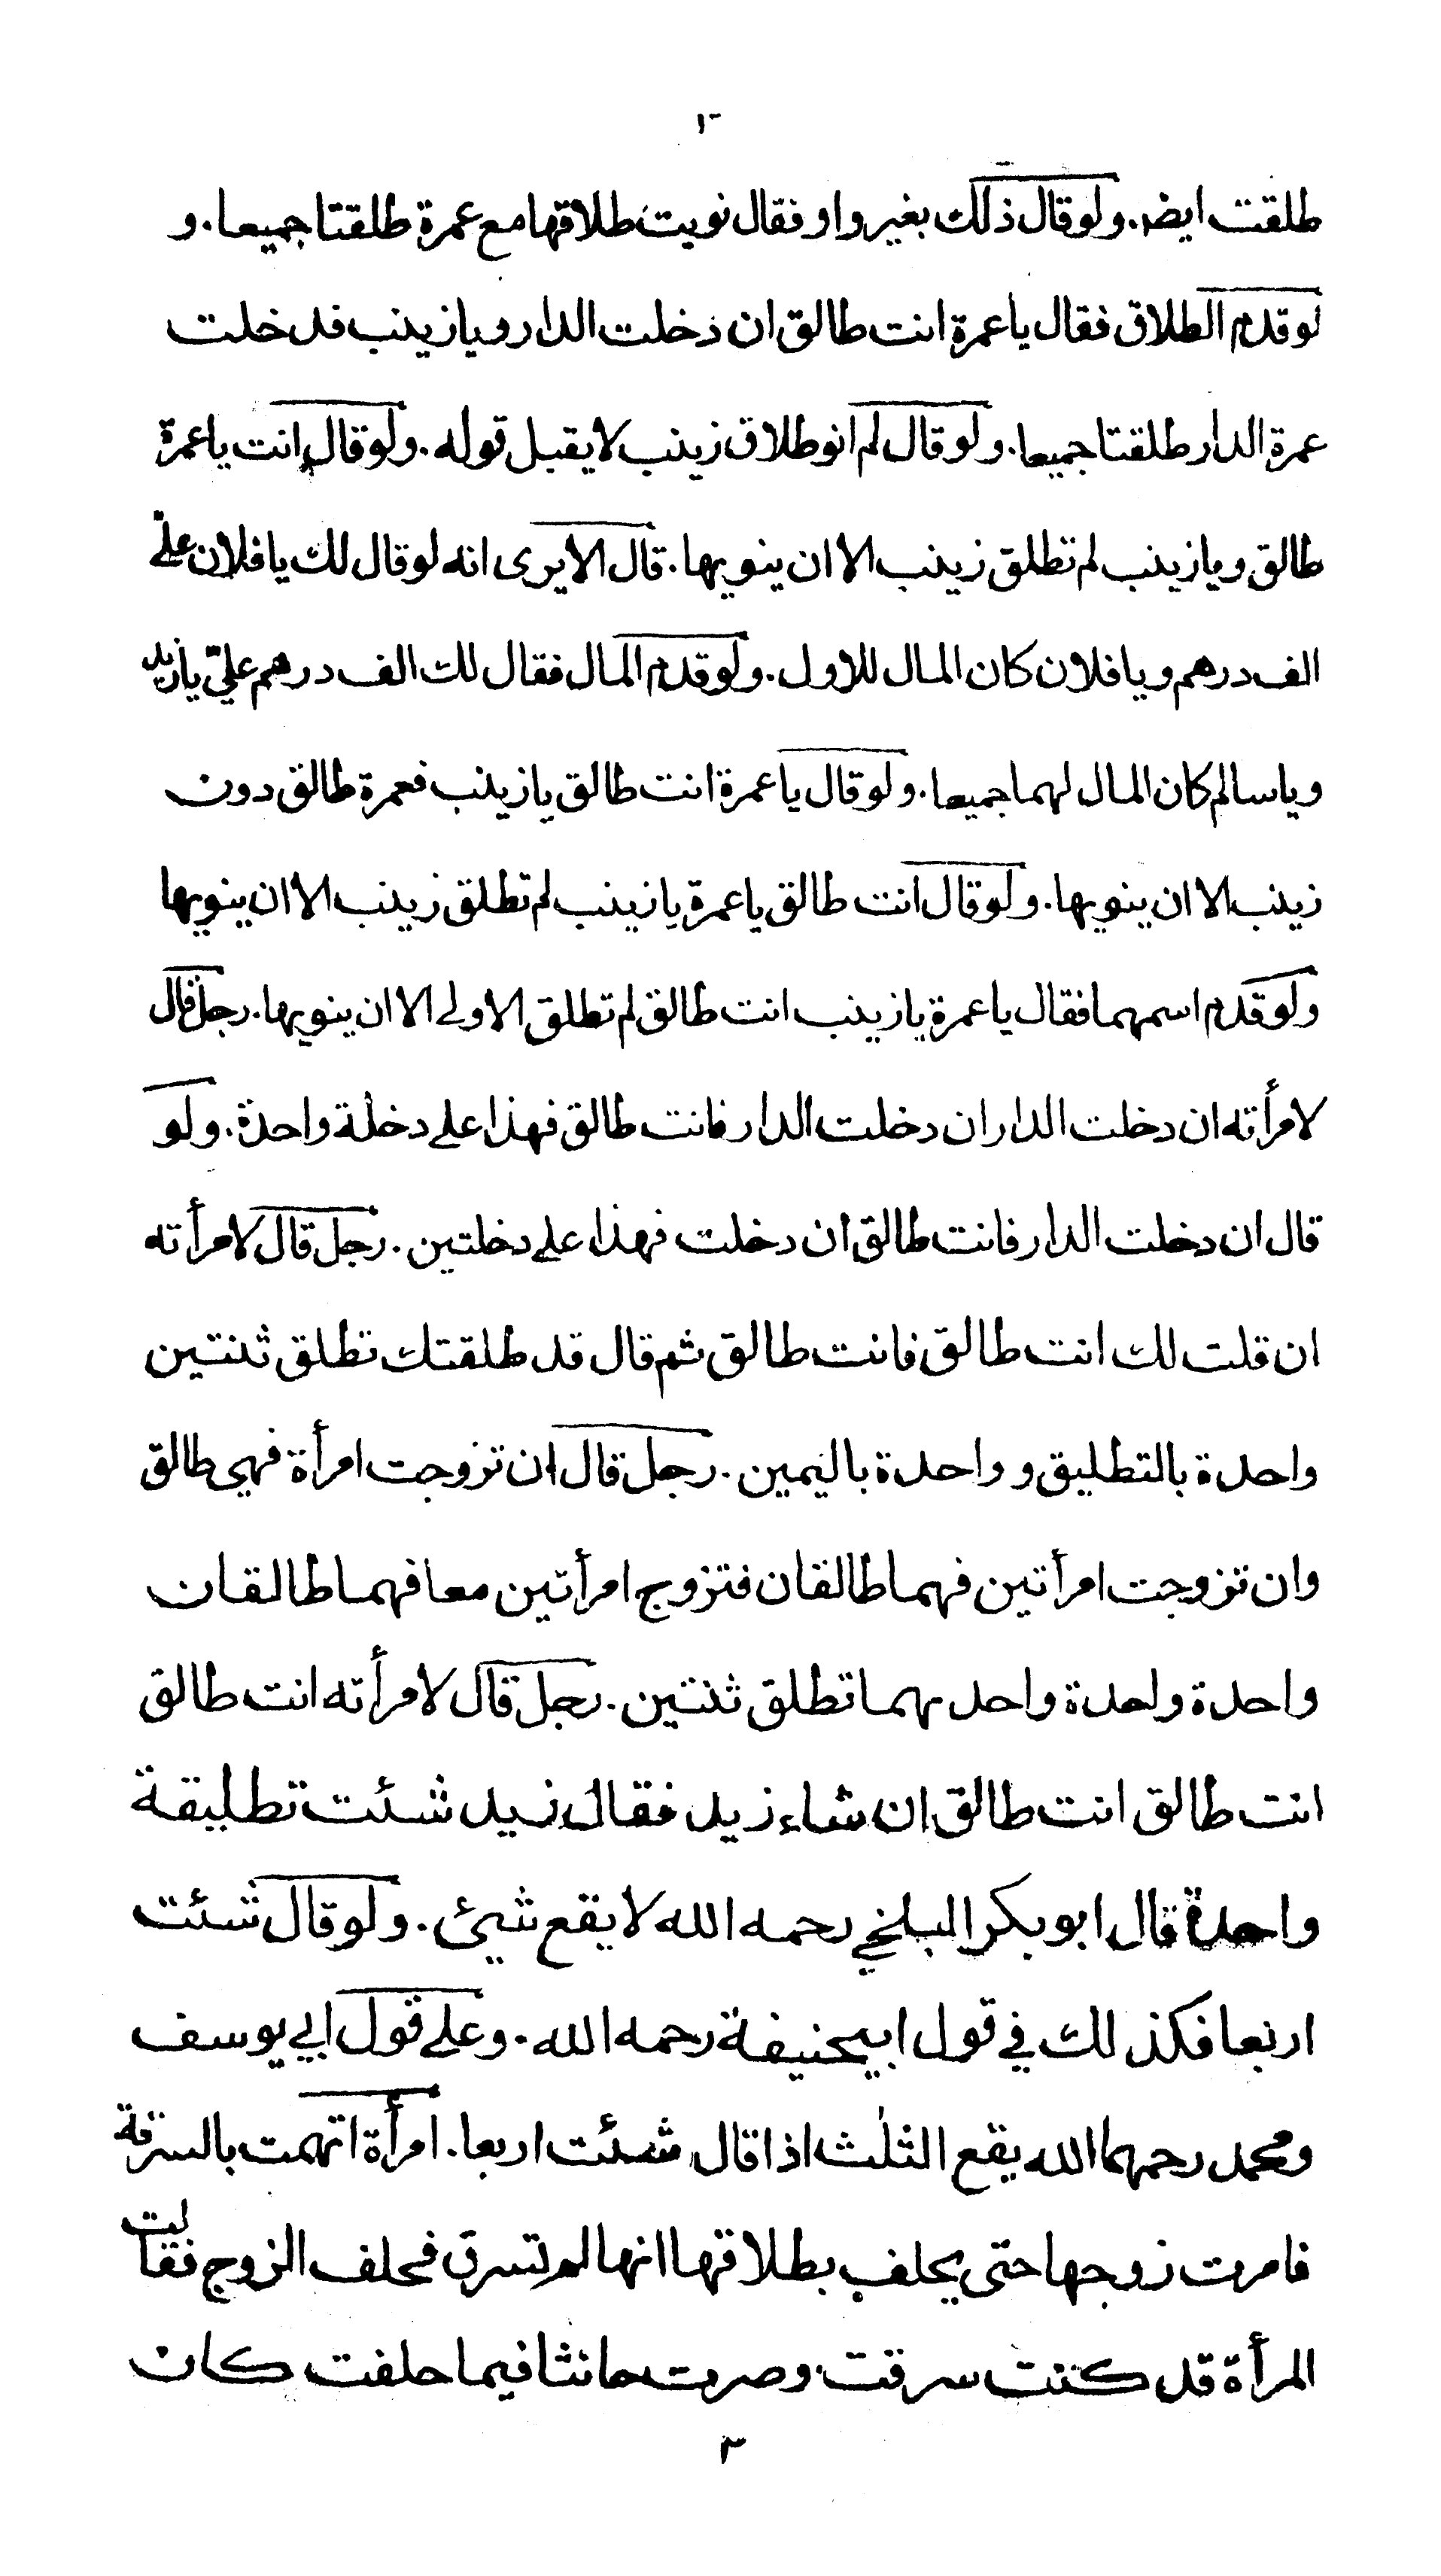 طلقت ايضا. ولو قال ذلك بغير واو فقال نويت طلاقها مع عمرة طلقتا جميعا. و
لو قدم الطلاق فقال يا عمرة انت طالق ان دخلت الدار ويا زينب فدخلت
عمرة الدار طلقتا جميعا. ولو قال لم انو طلاق زينب لا يقبل قوله. ولو قال انت يا عمرة
طالق ويا زينب لم تطلق زينب الا ان ينويها. قال الا يرى انه لو قال لك يا فلان علي
الف درهم ويا فلان كان المال للاول. ولو قدم المال فقال لك الف درهم علي يا زيد
ويا سالم كان المال لهما جميعا. ولو قال يا عمرة انت طالق يا زينب فعمرة طالق دون
زينب الا ان ينويها. ولو قال انت طالق يا عمرة يا زينب لم تطلق زينب الا ان ينويها
ولو قدم اسمهما فقال يا عمرة يا زينب انت طالق لم تطلق الاولى الا ان ينويها. رجل قال
لامرأته ان دخلت الدار ان دخلت الدار فانت طالق فهذا على دخلة واحدة. ولو
قال ان دخلت الدار فانت طالق ان دخلت فهذا على دخلتين. رجل قال لامرأته
ان قلت لك انت طالق فانت طالق ثم قال قد طلقتك تطلق ثنتين
واحدة بالتطليق و واحدة باليمين. رجل قال ان تزوجت امرأة فهي طالق
وان تزوجت امرأتين فهما طالقان فتزوج امرأتين معا فهما طالقان
واحدة واحدة واحد يهما تطلق ثنتين. رجل قال لامرأته انت طالق
انت طالق انت طالق ان شاء زيد فقال زيد شئت تطليقة
واحدة قال ابو بكر البلخي رحمه الله لا يقع شيئ. ولو قال شئت
اربعا فكذلك في قول ابيحنيفة رحمه الله. وعلى قول ابي يوسف
ومحمد رحمهما الله يقع الثلث اذا قال شئت اربعا. امرأة اتهمت بالسرقة
فامرت زوجها حتى يحلف بطلاقها انها لم تسرق فحلف الزوج فقالت
المرأة قد كنت سرقت وصرت حانثا فيما حلفت كان
٣